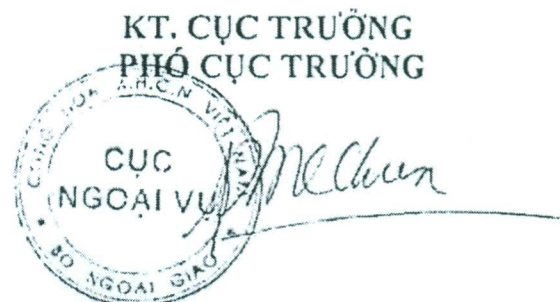 KT. CỤC TRƯỞNG
PHÓ CỤC TRƯỞNG
CỘNG HÒA X.H.C.N VIỆT NAM
CỤC
NGOẠI VỤ
★ BỘ NGOẠI GIAO ★